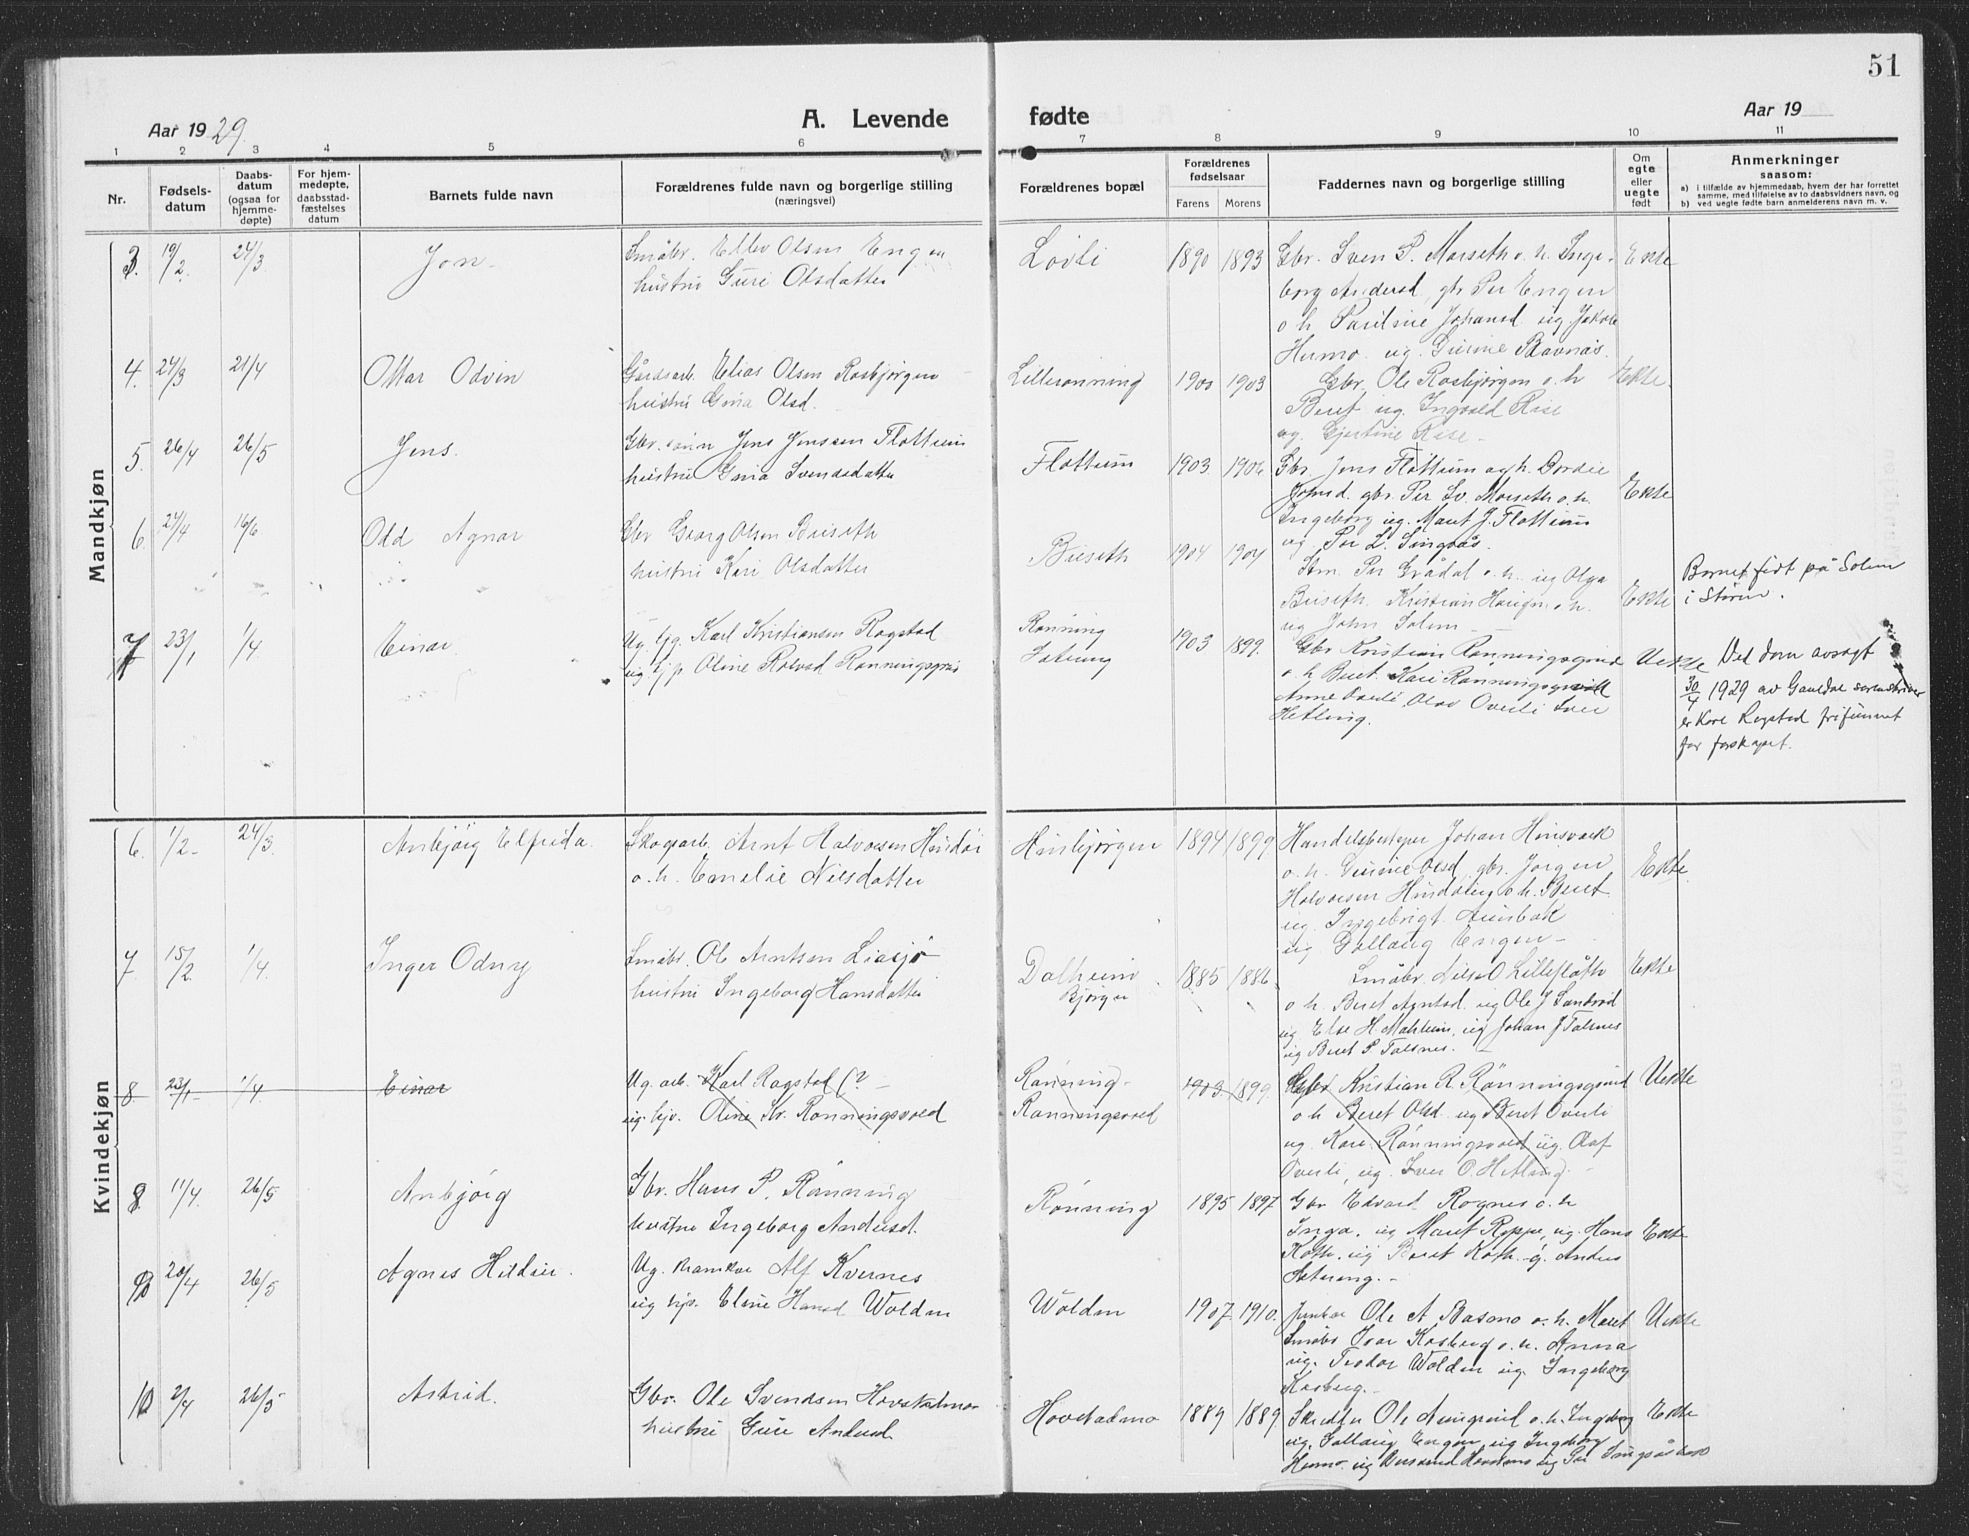 51
Aar 1929.
A. Levende
fødte
Aar 19
1 2 3 4 5 6 7 8 9 10 11
Nr.
Fødsels-
datum
Daabs-
datum
(ogsaa for
hjemme-
døpte)
For hjem-
medøpte,
daabsstad-
fæstelses
datum
Barnets fulde navn
Forældrenes fulde navn og borgerlige stilling
(næringsvei)
Forældrenes bopæl
Forældrenes
fødselsaar
Farens Morens
Faddernes navn og borgerlige stilling
Om
egte
eller
uegte
født
Anmerkninger
saasom:
a) i tilfælde av hjemmedaab, hvem der har forrettet
samme, med tilføielse av to daabsvidners navn, og
b) ved uegte fødte barn anmelderens navn m. v.
Mandkjøn
3. 19/2. 24/3 Jon.
Småbr. Olsen Engen
hustru Guri Olsdatter
Lovli 1890 1893
Gbr. Sven P. Morseth o. h. Inge-
borg Andersd, gbr Per Engen
o h Pauline Johansd ug Jakob
Humo. ug. Gurine Ravnås.
Ekte
4. 24/3 21/4 Ottar Odvin
Gårdsarb. Elias Olsen Rosbjørgen
hustru Gina Olsd.
Lillerønning 1900 1903
Gbr. Ole Rosbjørgen o. h
Beret ug. Ingvald Rise
ug. Gjertine Rise -
Ekte.
5. 26/4 26/5 Jens.
Gbr. sønn Jens Jenssen Flottum
hustru Gina Svendsdatter
Flottum 1903 1906
Gbr. Jens Flottum og h. Dordie
Johnsd. gbr. Per Sv. Morseth o. h.
Ingeborg ug. Marit J. Flottum
ug Per L. Singsås.
Ekte
6. 24/4 16/6 Odd Agnar
Gbr Georg Olsen Buseth
hustru Kari Olsdatter
Buseth 1904 1904
Sbr. Per Grådal o. h. ug Olga
Buseth. Kristian Haugen o. h.
ug John Solem -
Ekte
Barnet født på Solem
i Støren.
7 23/1 1/4. Einar.
Ug. Gg. Karl Kristiansen Rogstad
ug hjp Oline Rolvsd Rønningsgrind
Rønning
Sætrang
1903 1899.
Gbr Kristian Rønningsgrind
o. h Beret Kari Rønningsgrind
Anne Overli Olav Overli Iver
Hetling.
Uekte
Ved dom avsagt
30/4 1929 av Gauldal sorenskriver
er Kare Rogstad frifunnet
for farskapet.
Kvindekjøn
6. 1/2- 24/3. Anbjørg Elfrida.
Skogsarb. Arnt Halvorsen Hindøi
o. h. Emelie Nilsdatter
Hinbjørgen 1894 1899
Handelsbestyrer Johan Hinsverk
o. h. Gurine Olsd, gbr. Jørgen
Halvorsen Hindølien o. h. Beret
ug. Ingebrigt Aunbak
ug Gollaug Engen -
Ekte.
7. 15/2. 1/4. Inger Odny
Småbr. Ole Arntsen Liasjø
hustru Ingeborg Hansdatter
Dalheim
Bjørgen
1885 1886
Småbr. Nils O Lilleflåth
o. h Beret Arntsd. ug Ole J Sandrød
ug Else H. Mahleim, ug Johan J Talsnes
ug Beret P. Talsnes. -
Ekte
8. 23/1 1/4. Einar
Ug. arb. Karl Rogstad (? -
ug hjv. Oline Kr. Rønningsvold
Rønning -
Rønningsvold
1903 1899.
Gbr Kristian R. Rønningsgrind
o. h Beret Olsd ug Beret Overli
ug. Kari Rønningsvold ug. Olaf
Overli, ug. Iver O. Hetling. -
Uekte
8. 11/4. 26/5 Anbjørg
Gbr. Hans P. Rønning
hustru Ingeborg Andersd.
Rønning 1895 1897
Gbr Edvart Rognes o. h
Inga, ug Marit Roppe, ug. Hans
Koth. ug Beret Koth. g. Anders
Sætrang. -
Ekte
9 20/4 26/5 Agnes Hildur.
Ug. Alf Kvernes
ug hjv. Eline Hansd Wolden
Wolden 1907 1910.
Ole A Basmo o. h. Marit
Småbr Ivar Kosberg o. h. Anna
ug. Teodor Wolden ug Ingeborg
Kosberg. -
Uekte
10 2/4 26/5 Astrid.
Gbr. Ole Svendsen Hovstadmo
hustru Guri Andersd.
Hovstadmo 1889 1889.
Ole Aungrind o. h. Ingeborg
ug. Gollaug Engen ug Ingeborg
Humo. ug
Ekte